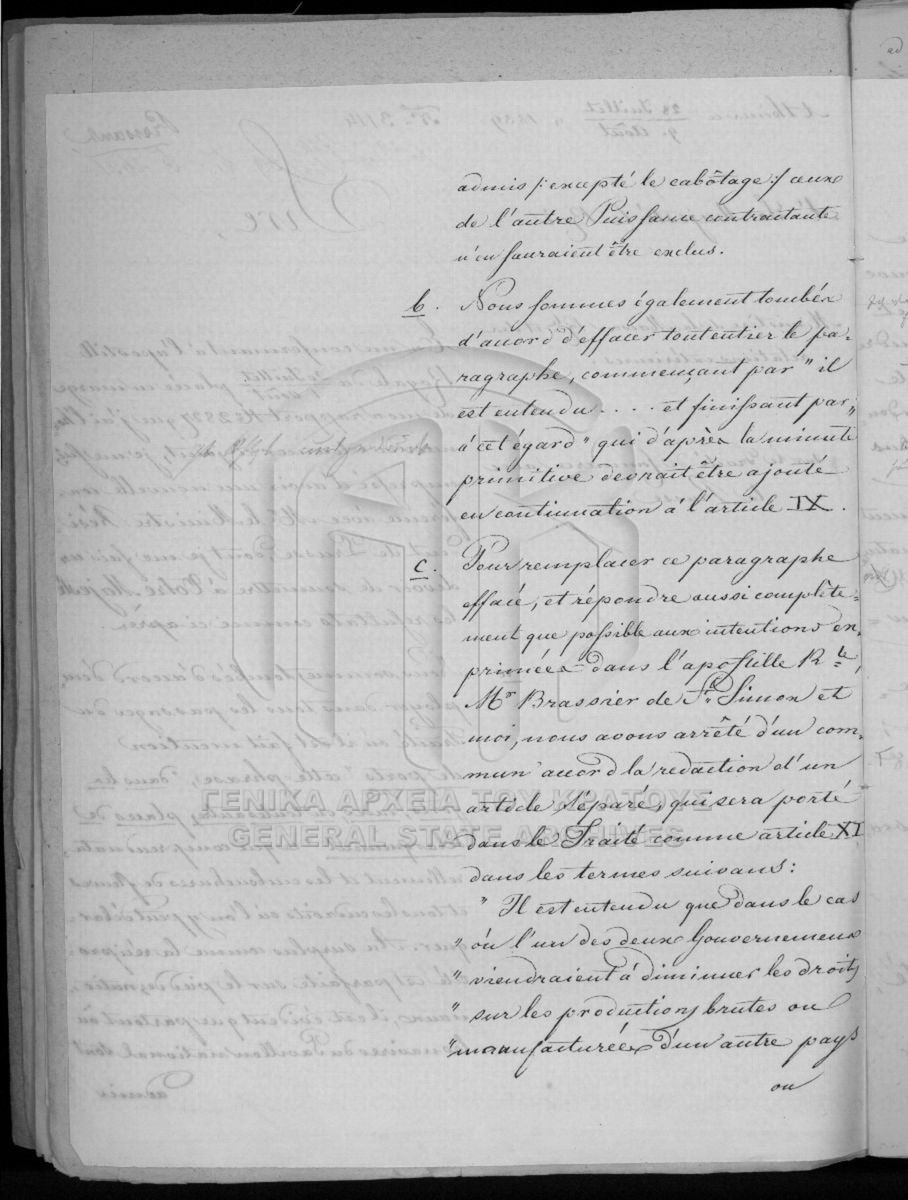 admis /: excepté le cabôtage :/ ceux
de l'autre Puissance contractante
n'en sauraient être exclus.
b. Nous sommes également tombés
d'accord d'effacer tout entier le pa-
ragraphe, commençant par "il
est entendu . . . . et finissant par "
à cet égard" qui d'après la minute
primitive devrait être ajouté
en continuation à l'article IX.
c. Pour remplacer ce paragraphe
effacé, et répondre aussi complète=
ment que possible aux intentions ex-
primées dans l'apostille Rle,
Mr Brassier de St Simon et
moi, nous avons arrêté d'un com-
mun accord la redaction d'un
article séparé, qui sera porté
dans le Traité comme article XI
dans les termes suivans:
" Il est entendu que dans le cas
" où l'un des deux Gouvernemens
" viendraient à diminuer les droits
" sur les productions brutes ou
" manufacturées d'un autre pays
ou
ΓΕΝΙΚΑ ΑΡΧΕΙΑ ΤΟΥ ΚΡΑΤΟΥΣ
GENERAL STATE ARCHIVES